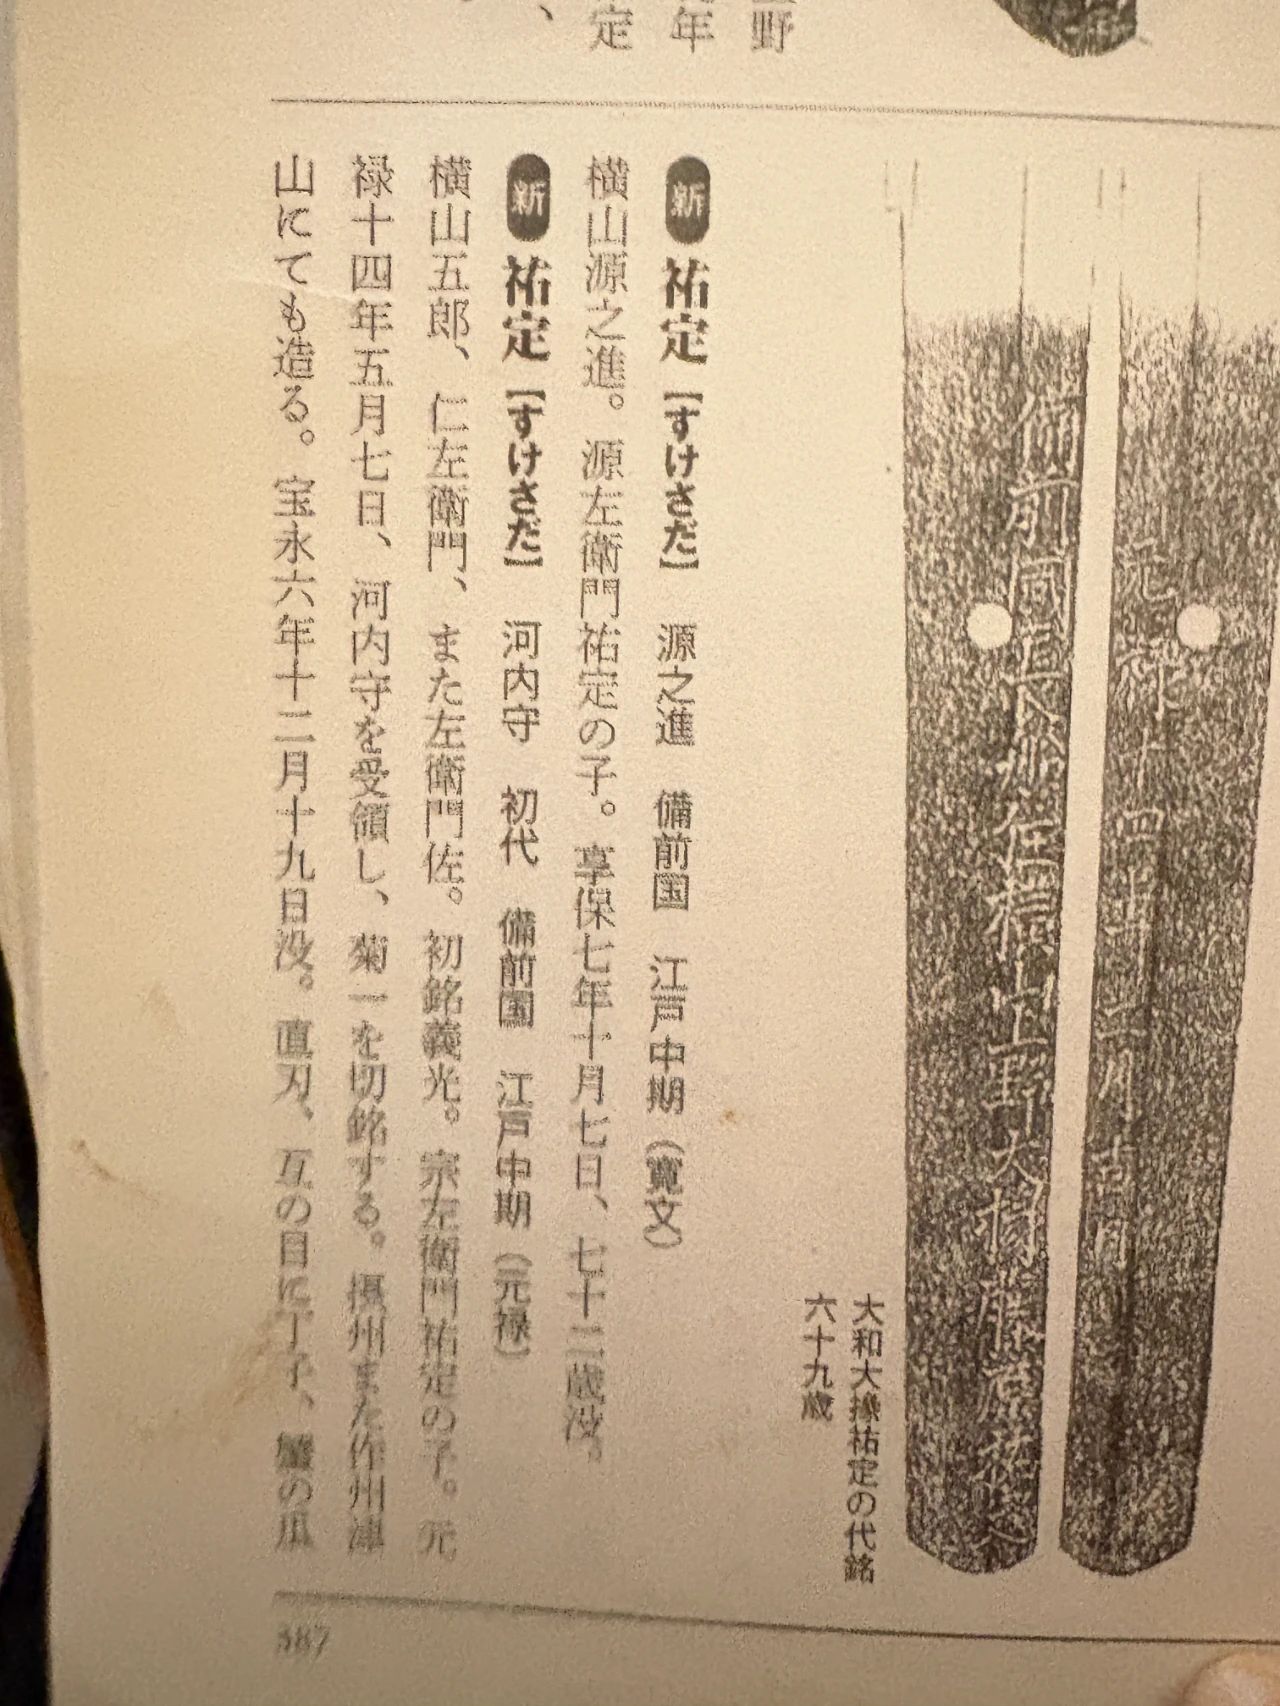 野
年
定
、
備前国長船住横山上野大掾藤原祐定
元禄十四年二月吉日
大和大掾祐定の代銘
六十九歳
新 祐定【すけさだ】 源之進 備前国 江戸中期（寛文）
横山源之進。源左衛門祐定の子。享保七年十月七日、七十二歳没。
新 祐定【すけさだ】 河内守 初代 備前国 江戸中期（元禄）
横山五郎、仁左衛門、また左衛門佐。初銘義光。宗左衛門祐定の子。元
禄十四年五月七日、河内守を受領し、菊一を切銘する。摂州また作州津
山にても造る。宝永六年十二月十九日没。直刃、互の目に丁子、蟹の爪
387